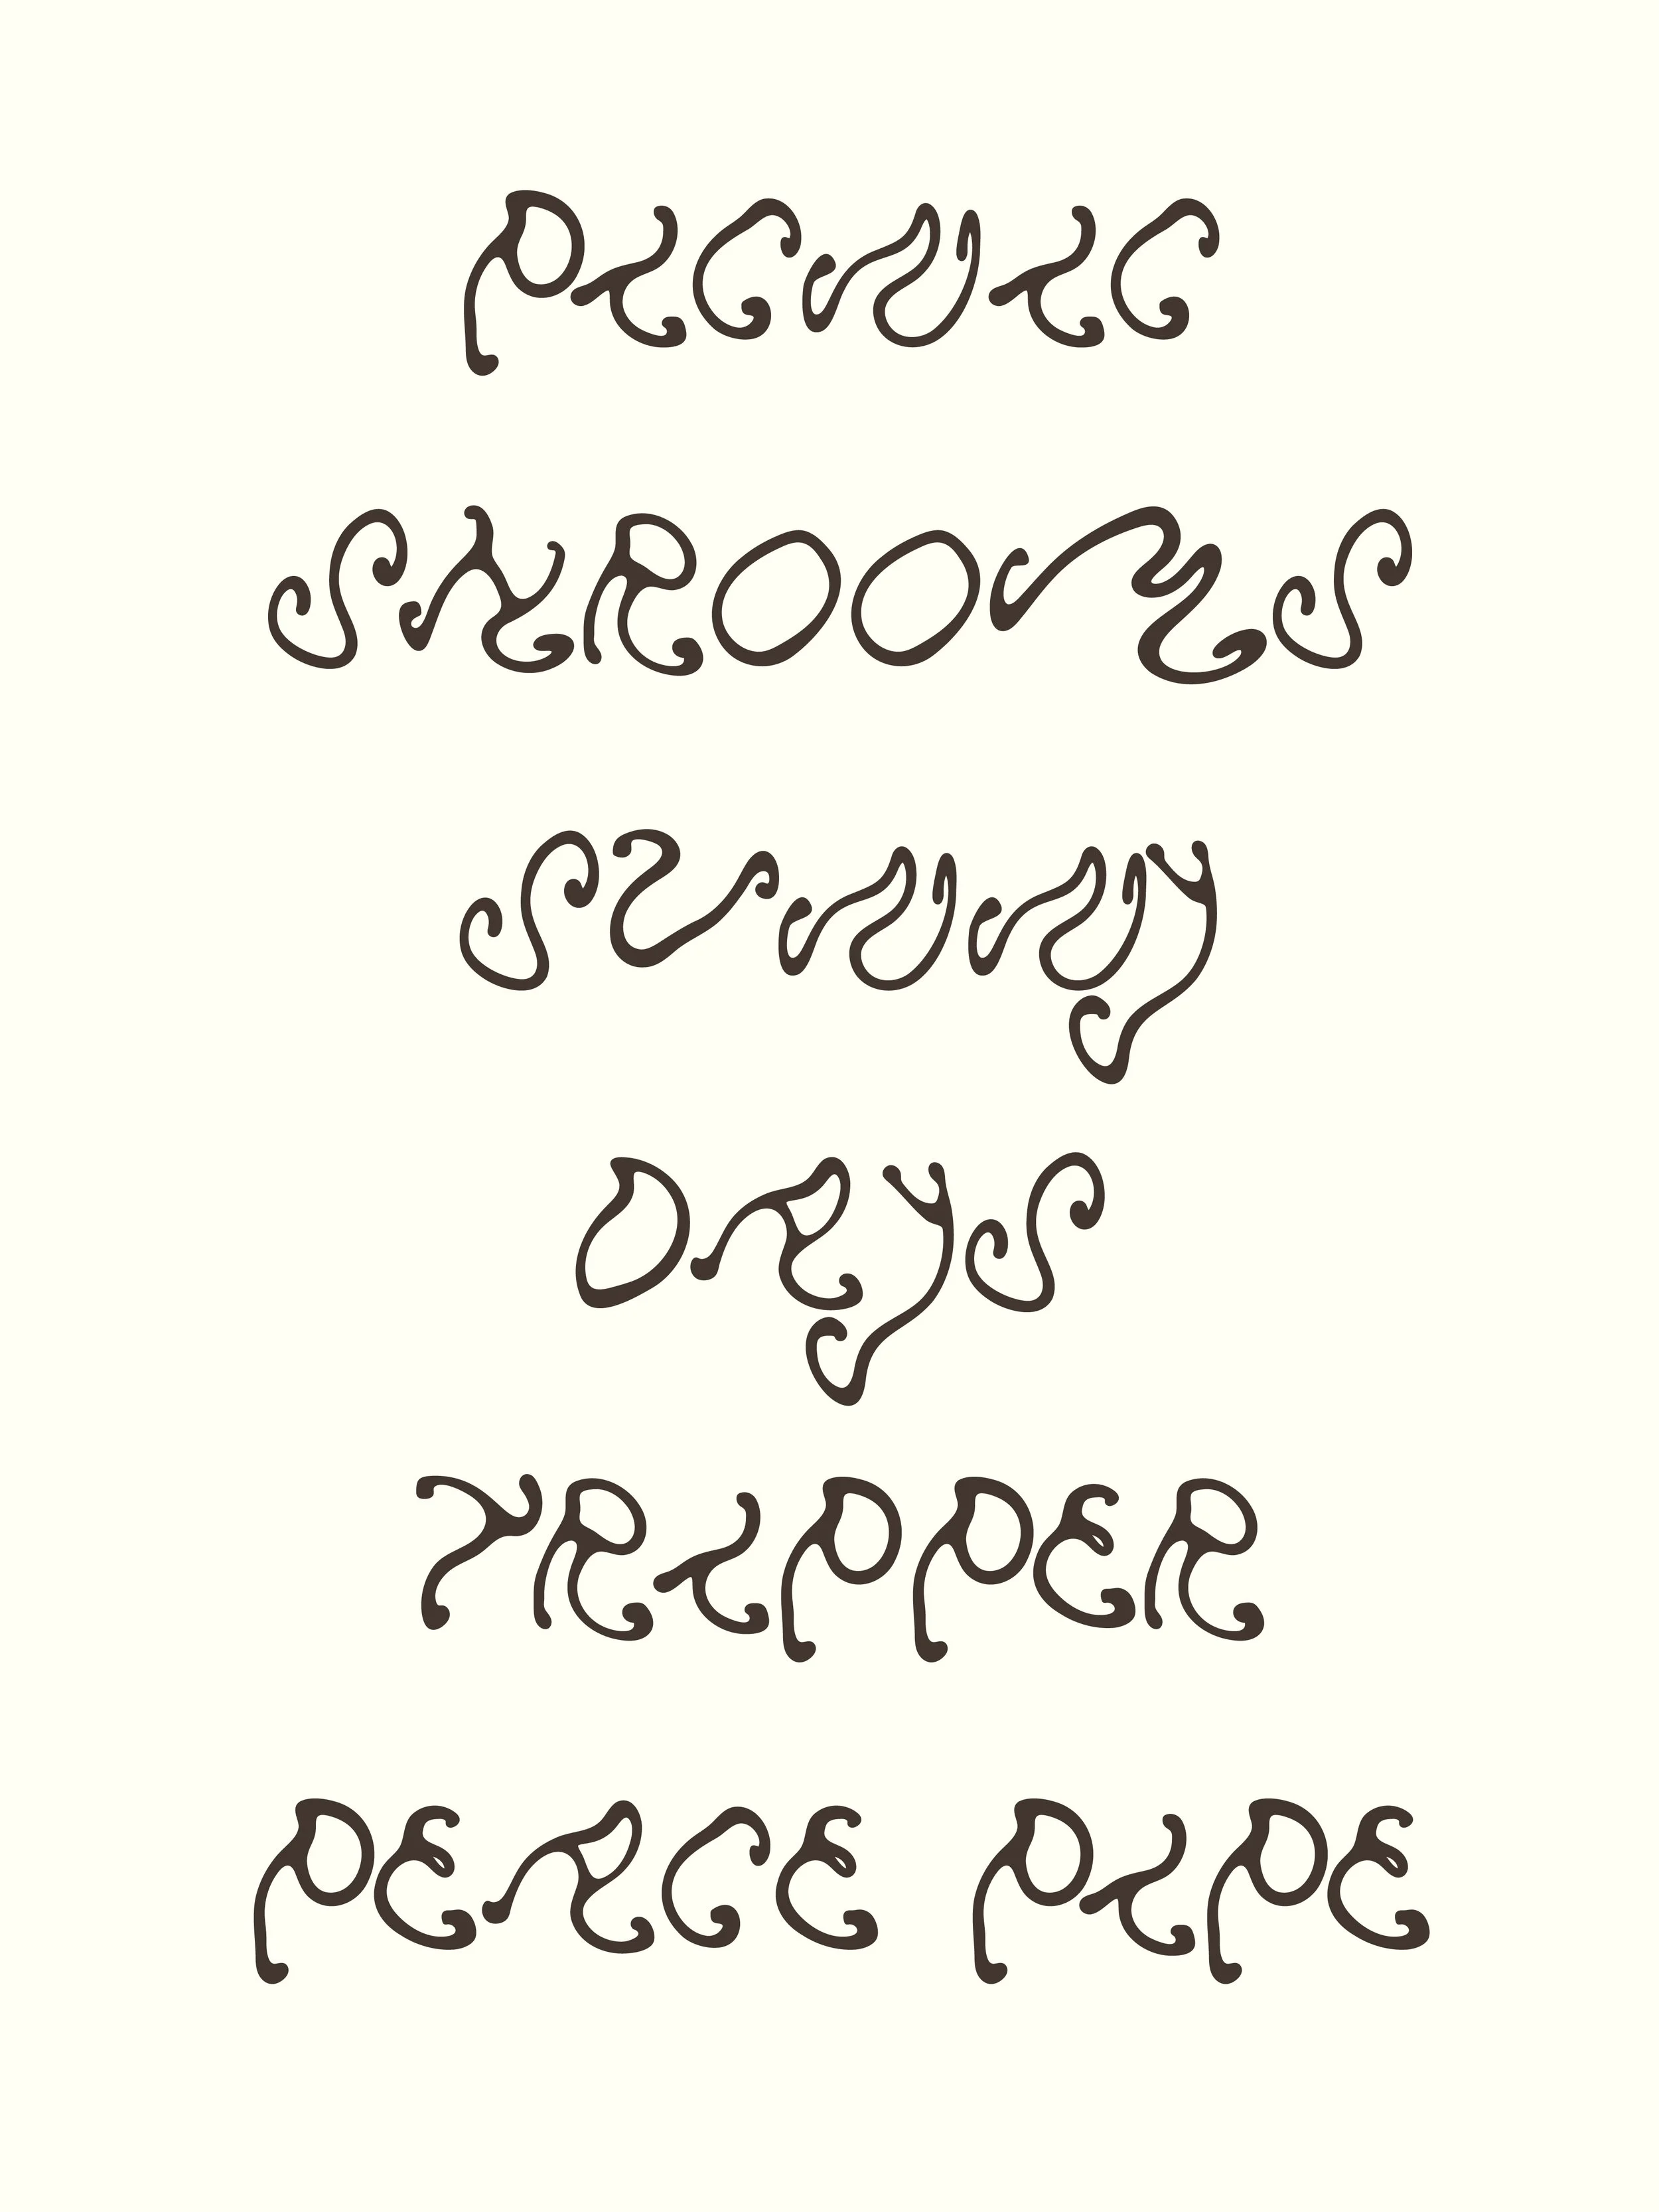 PICNIC
SHROOMS
SUNNY
DAYS
TRIPPER
PEACE PIPE